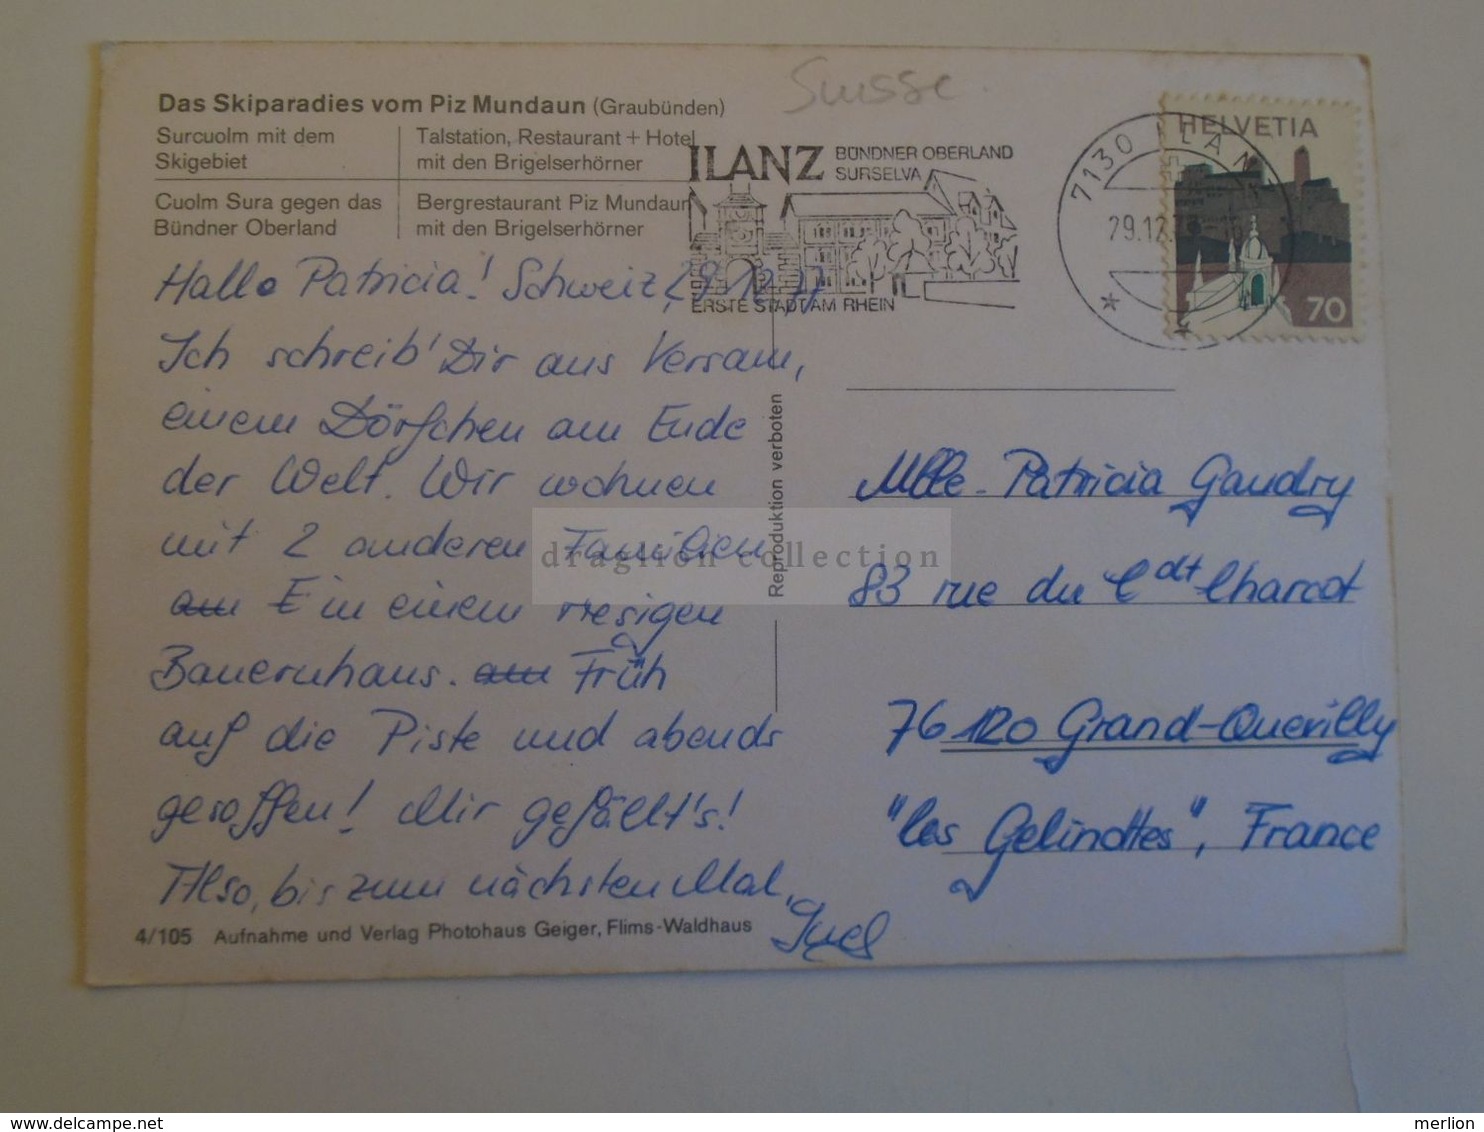 Suisse
Das Skiparadies vom Piz Mundaun (Graubünden)
Surcuolm mit dem
Skigebiet
Talstation, Restaurant + Hotel
mit den Brigelserhörner
Cuolm Sura gegen das
Bündner Oberland
Bergrestaurant Piz Mundaun
mit den Brigelserhörner
ILANZ
BÜNDNER OBERLAND
SURSELVA
ERSTE STADT AM RHEIN
7130 ILANZ
29.12.7
HELVETIA
70
Hallo Patricia! Schweiz, 29.12.77
Ich schreib' Dir aus Versam,
einem Dörfchen am Ende
der Welt. Wir wohnen
mit 2 anderen Familien
am E in einem riesigen
Bauernhaus. am Früh
auf die Piste und abends
gesoffen! Mir gefällt's!
Also, bis zum nächsten Mal,
4/105 Aufnahme und Verlag Photohaus Geiger, Flims-Waldhaus
Reproduktion verboten
Mlle. Patricia Gaudry
83 rue du Cdt Charcot
76 120 Grand-Quevilly
"les Gelinottes", France
draglion collection
merlion